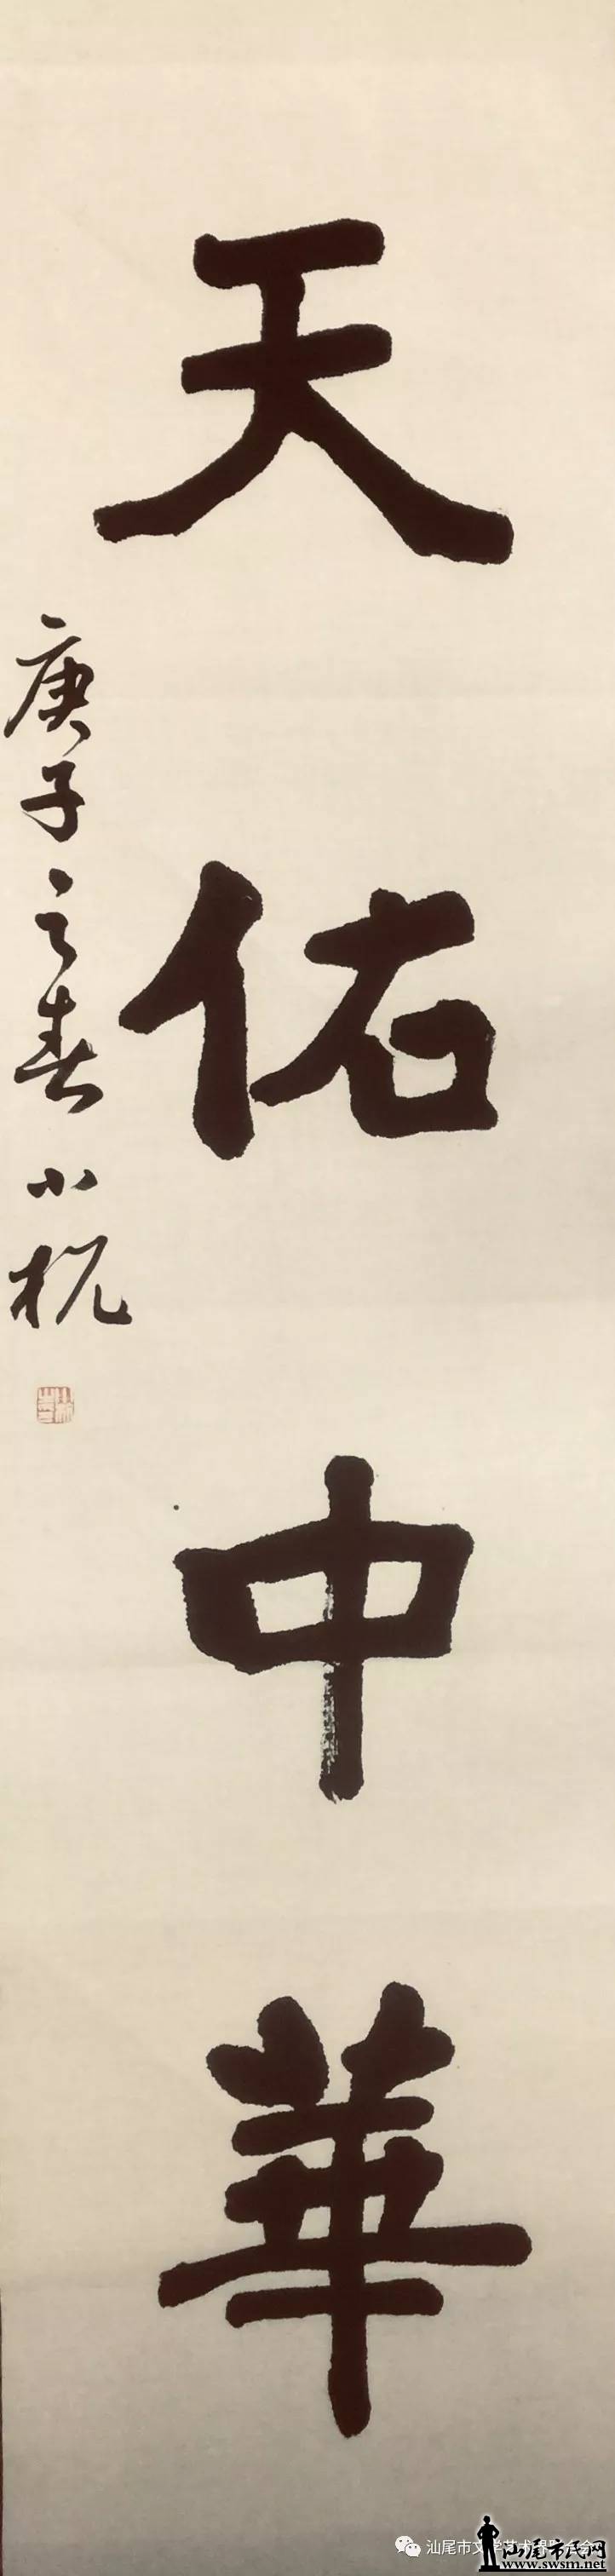 天佑中華
庚子之春 小杭
汕尾市文学艺术界联合会
汕尾市民网
www.swsm.net